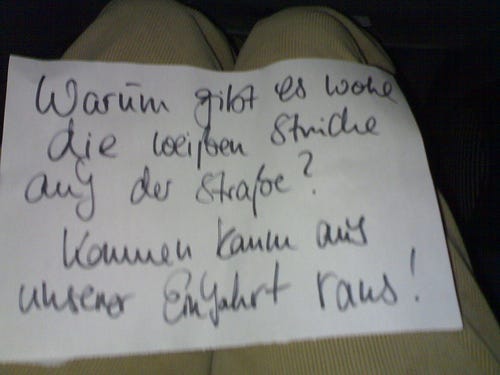 Warum gibt es wohl
die weißen Striche
auf der Straße?
Kommen kaum aus
unserer Einfahrt raus!